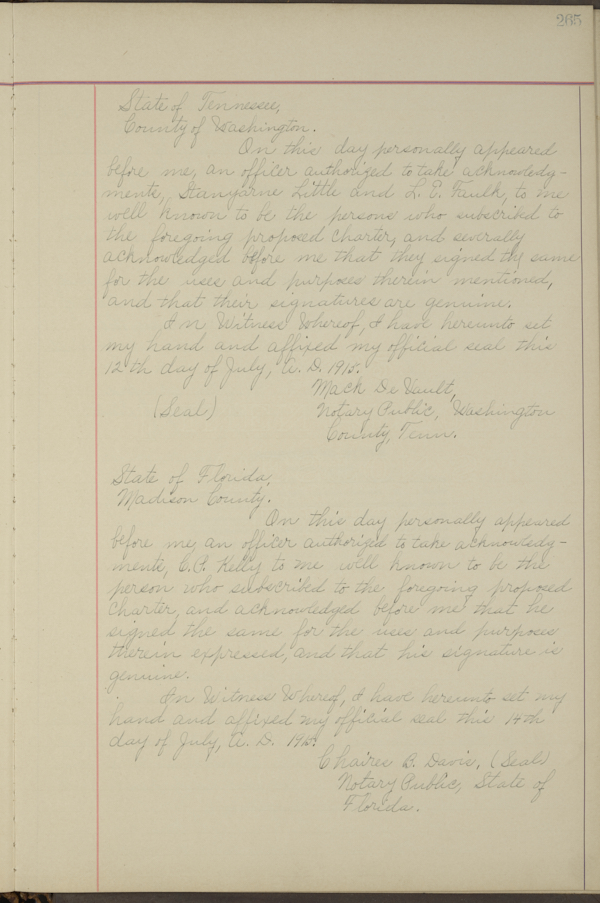 265
State of Tennessee,
County of Washington.
On this day personally appeared
before me, an officer authorized to take acknowledg-
ments, Stanyarne Little and L. E. Faulk, to me
well known to be the persons who subscribed to
the foregoing proposed charter, and severally
acknowledged before me that they signed the same
for the uses and purposes therein mentioned,
and that their signatures are genuine.
In Witness Whereof, I have hereunto set
my hand and affixed my official seal this
12th day of July, A. D. 1915.
Mack De Vault,
(Seal) Notary Public, Washington
County, Tenn.
State of Florida,
Madison County.
On this day personally appeared
before me, an officer authorized to take acknowledg-
ments, C. P. Kelly, to me well known to be the
person who subscribed to the foregoing proposed
charter, and acknowledged before me that he
signed the same for the uses and purposes
therein expressed, and that his signature is
genuine.
In Witness Whereof, I have hereunto set my
hand and affixed my official seal this 14th
day of July, A. D. 1915.
Chaires B. Davis, (Seal)
Notary Public, State of
Florida.